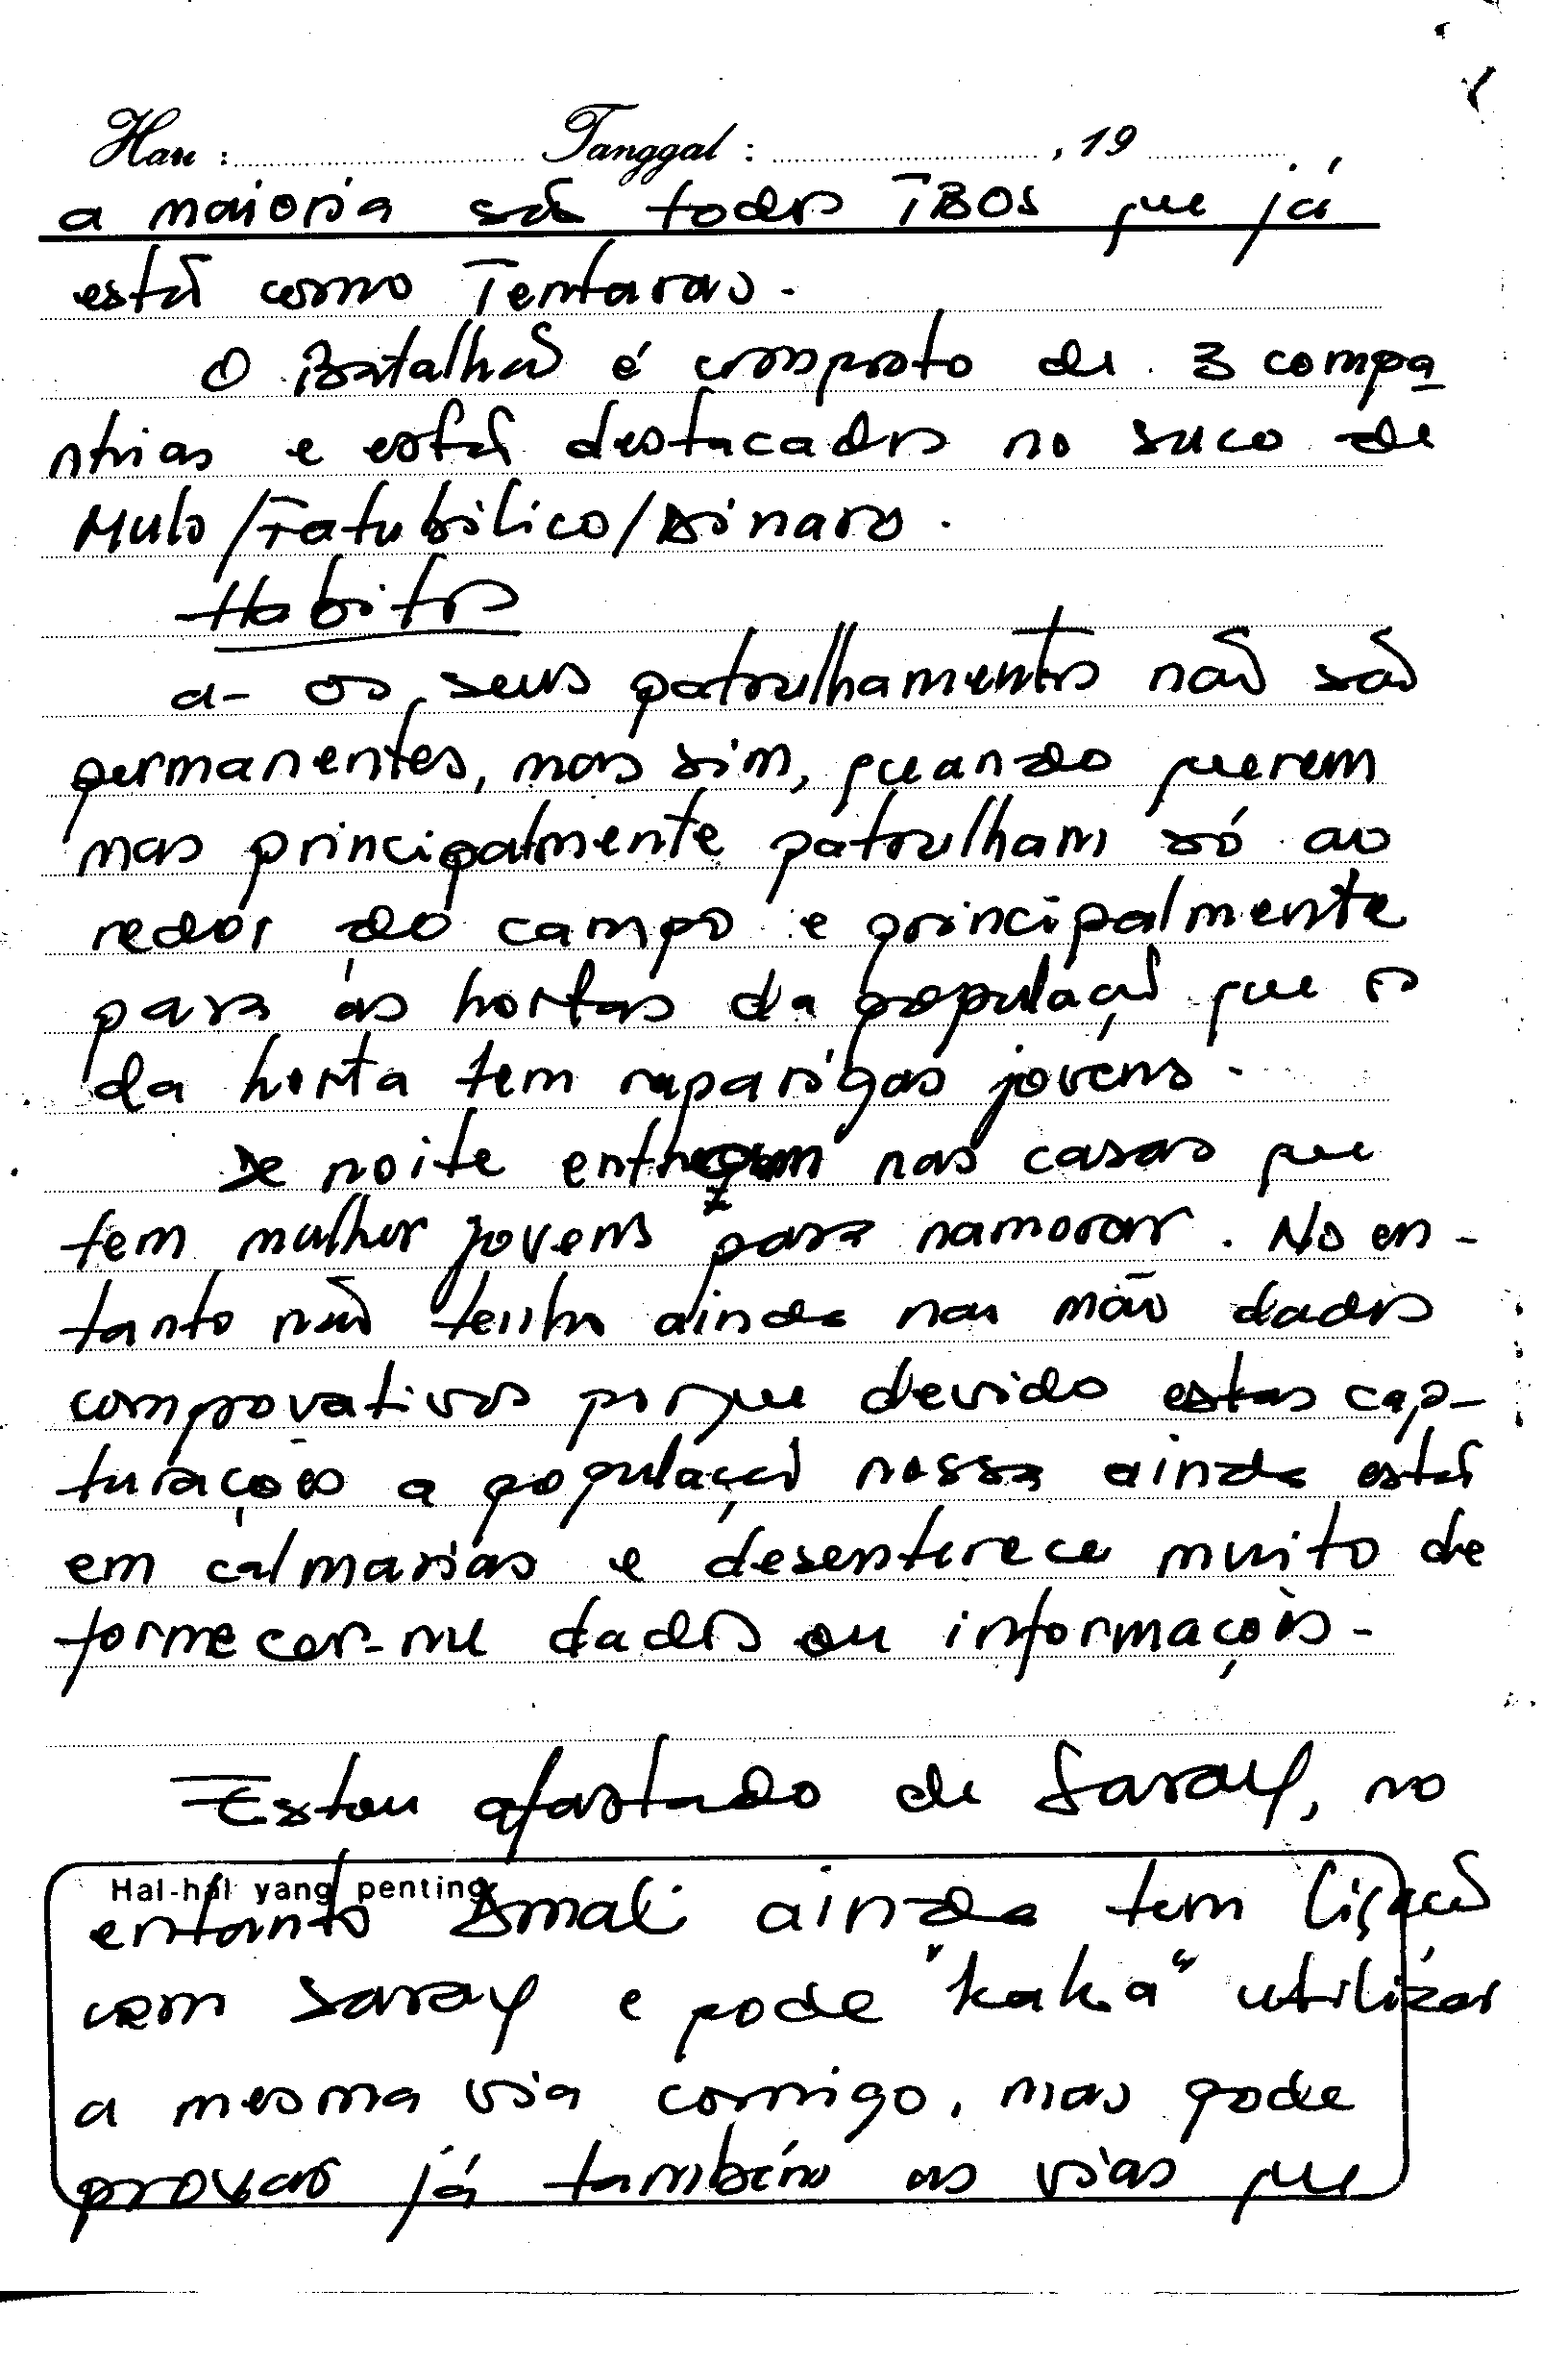 Hari : Tanggal : , 19
a maioria são todos TBOS que já
está como Tentaras.
O Batalhão é composto de 3 compa
nhias e está destacados no suco de
Mulo/Fatubilico/Ainaro.
Habitos
a- os seus patrulhamentos não são
permanentes, mas sim, quando querem
mas principalmente patrulham só ao
redor do campo e principalmente
para as hortas da população que o
da horta tem raparigas jovens.
De noite entregam nas casas que
tem mulher jovens para namorar. No en-
tanto não tenho ainda nas mão dados
comprovativos porque devido estas cap-
turações a população nossa ainda está
em calmarias e desenterece muito de
fornecer-me dados ou informações-
Estou afastado de Saray, no
Hal-hal yang penting
entanto Amali ainda tem ligação
com Saray e pode "kaka" utilizar
a mesma via comigo, mas pode
provar já também as vias que